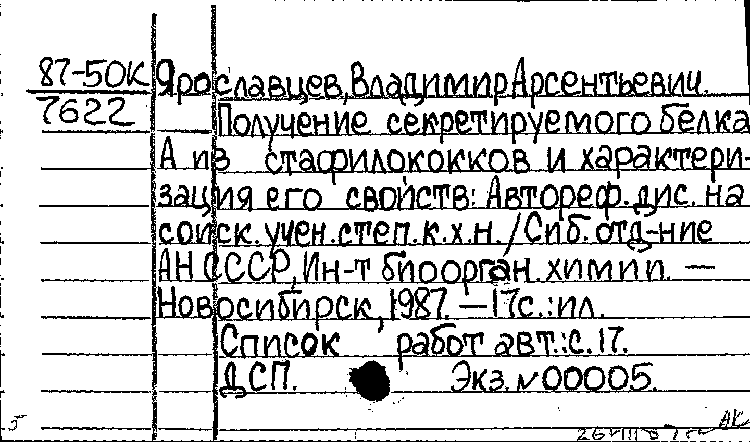 87-50К Ярославцев, Владимир Арсентьевич.
7622 Получение секретируемого белка
А из стафилококков и характери-
зация его свойств: Автореф. дис. на
соиск. учен. степ. к.х.н. / Сиб. отд-ние
АН СССР, Ин-т биоорган. химии. —
Новосибирск, 1987. — 17с.: ил.
Список работ авт.: с. 17.
ДСП. Экз. № 00005.
5
АК